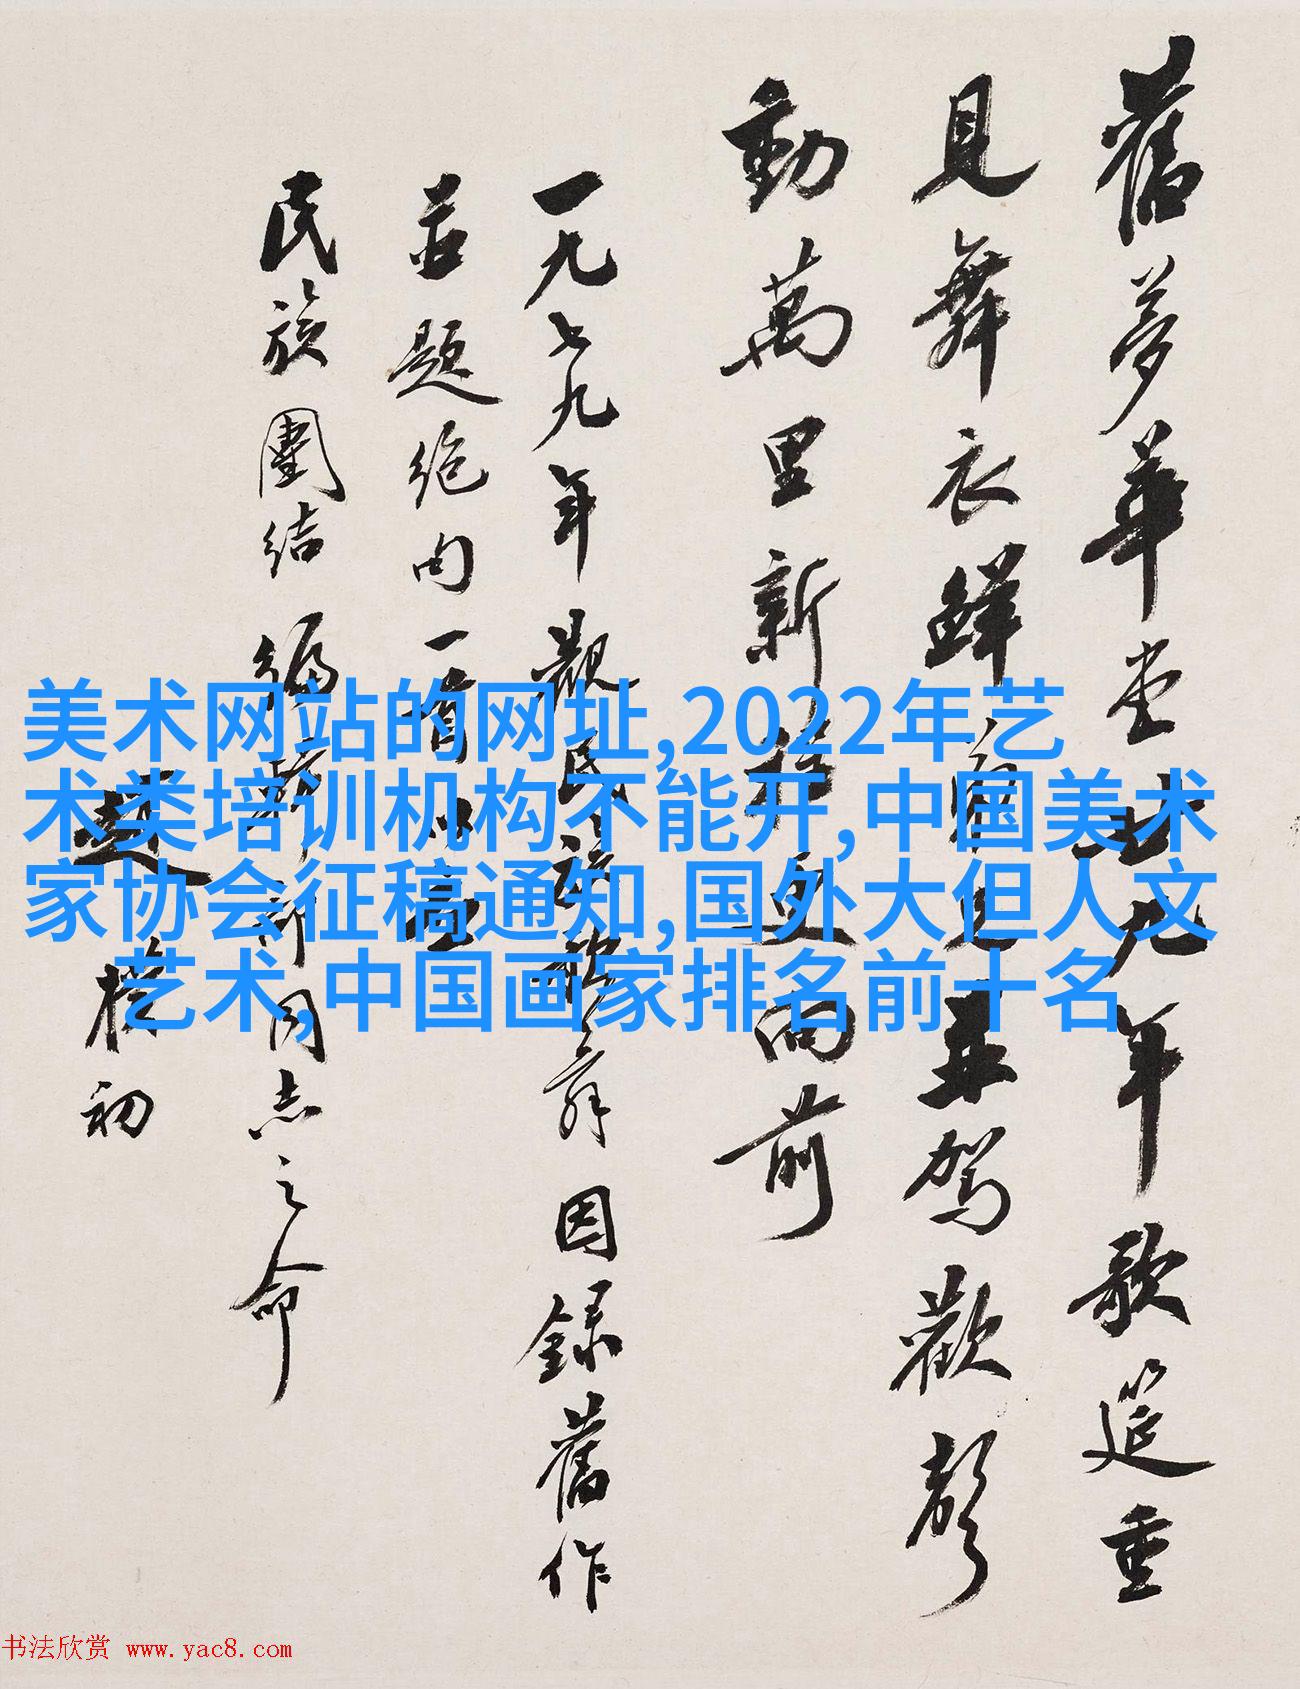 舊夢華堂九年歌筵重
見舞衣鮮並駕歡聲
動萬里新程更向前
一九七九年觀民族歌舞因錄舊作
並題絕句一首以
民族團結編輯部同志之命
趙樸初
美术网站的网址,2022年艺
术类培训机构不能开,中国美术
家协会征稿通知,国外大但人文
艺术,中国画家排名前十名
书法欣赏 www.yac8.com